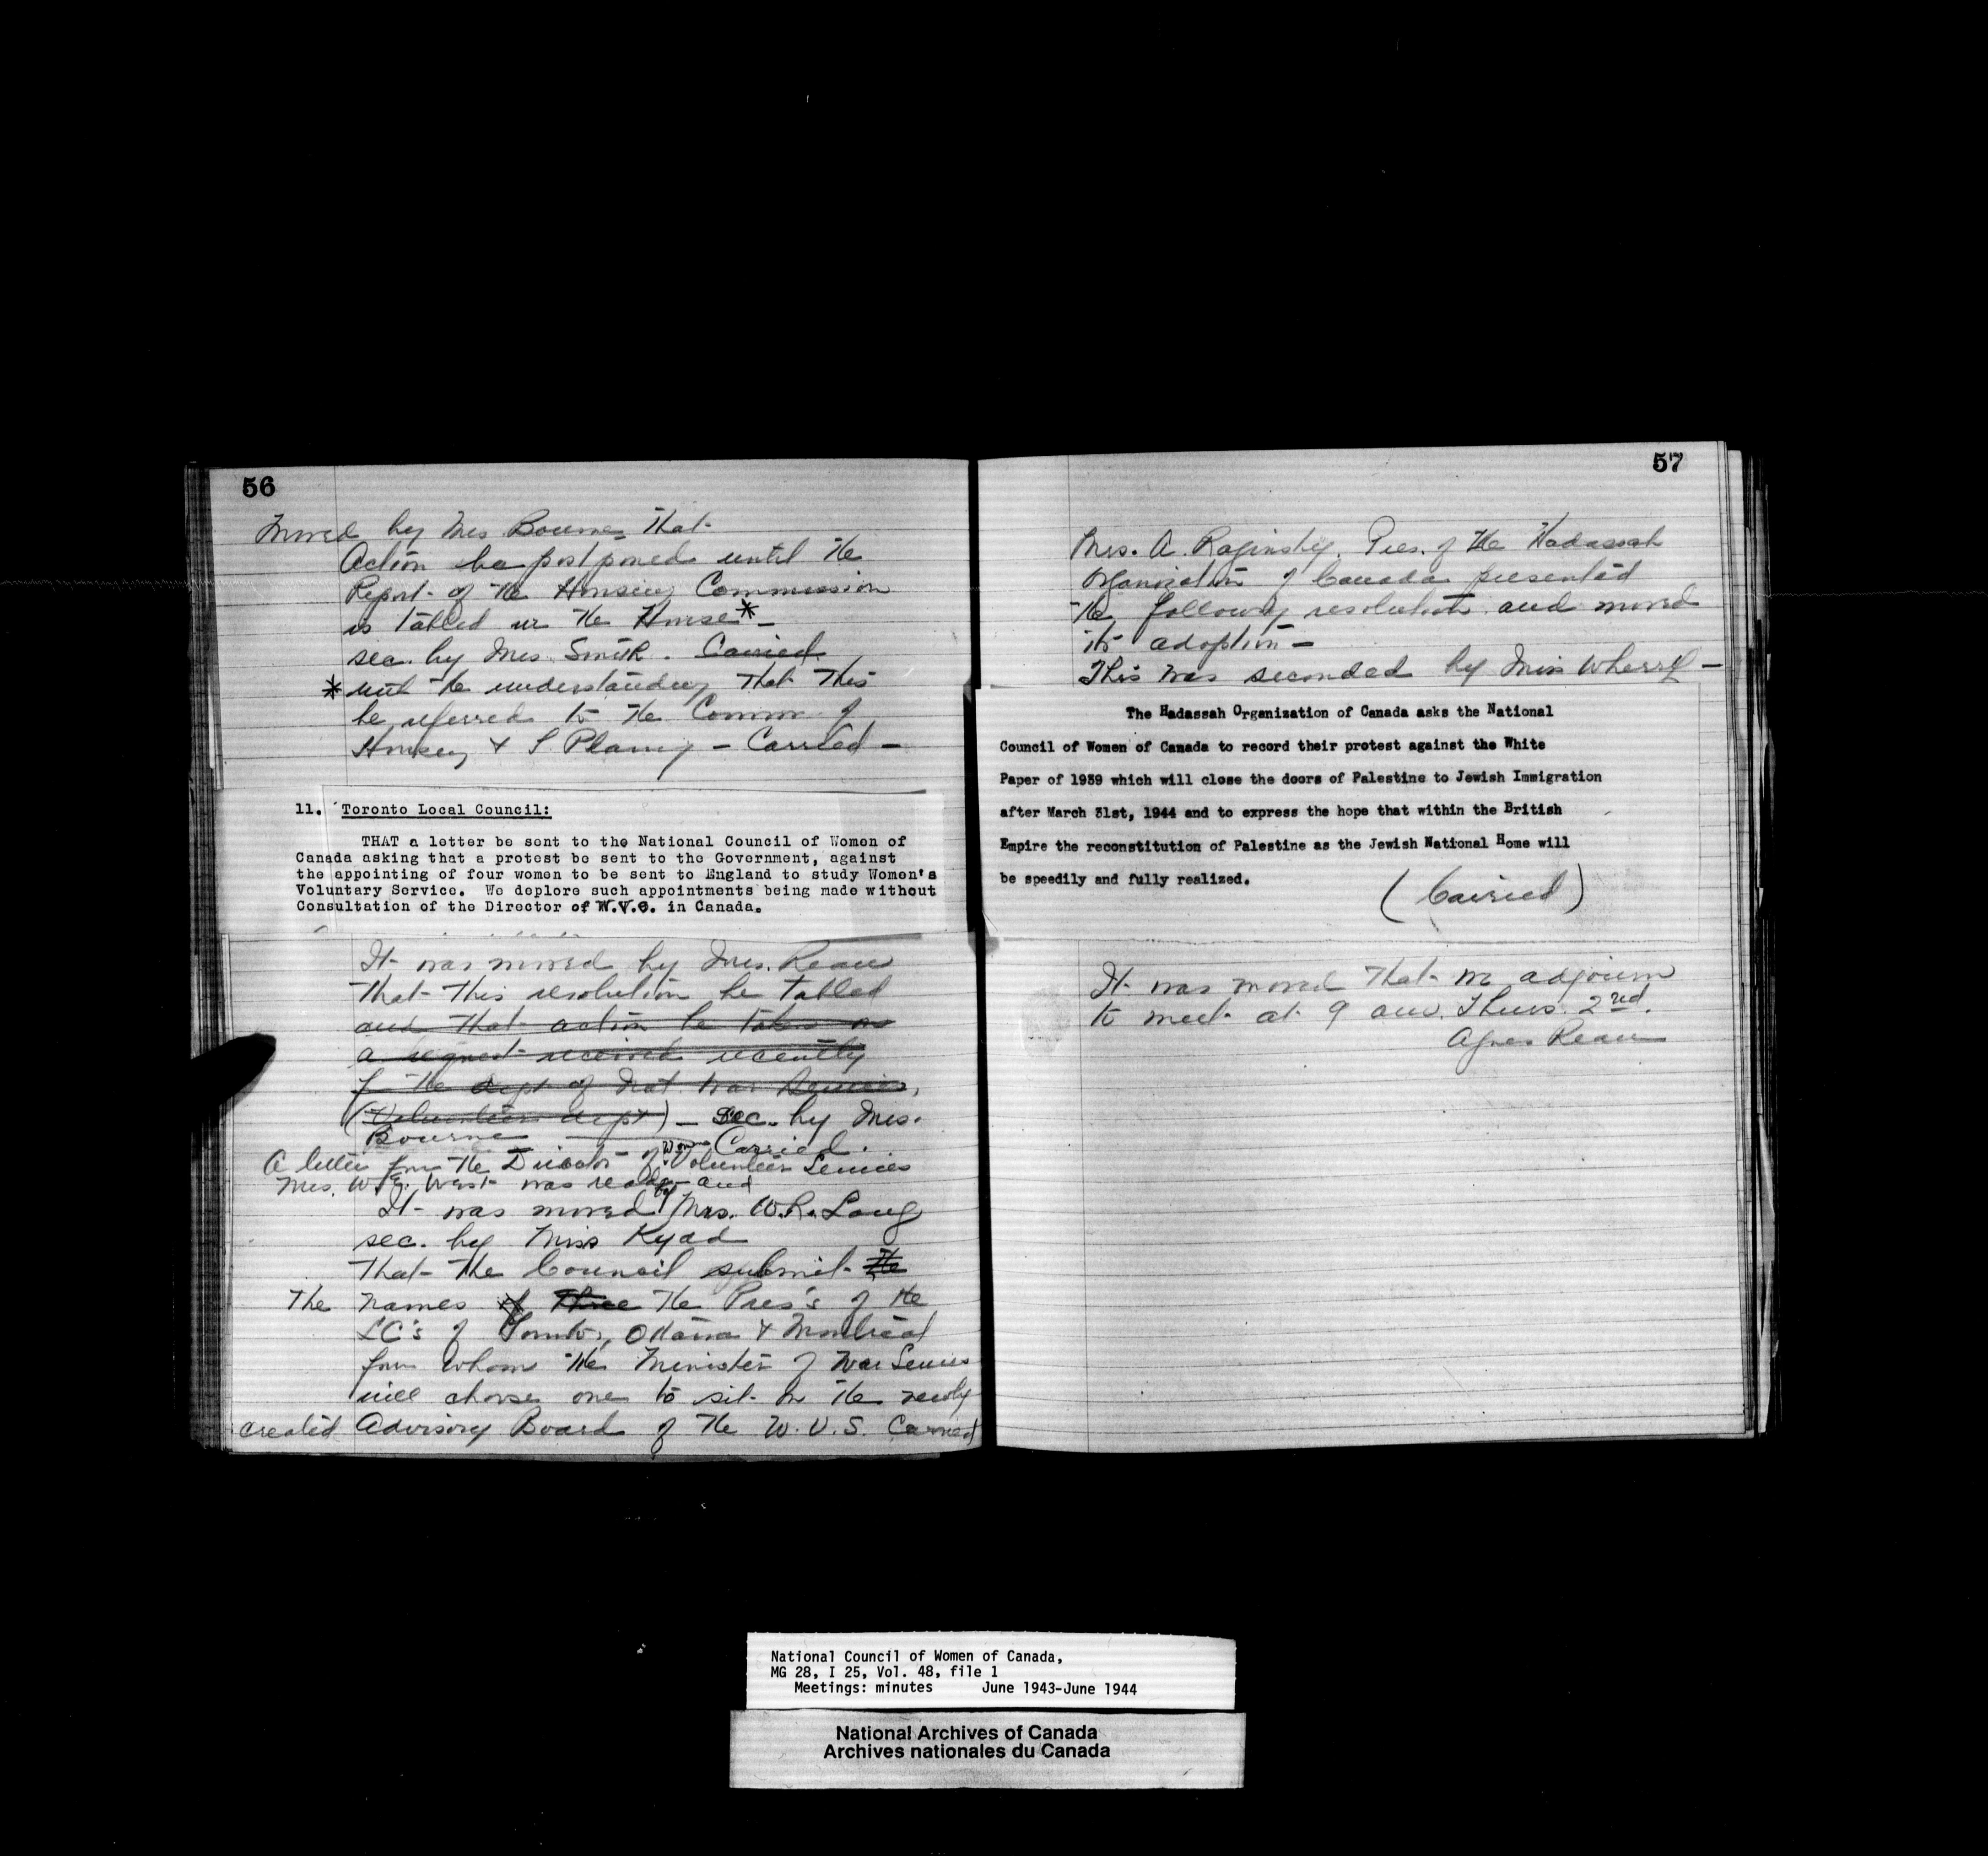 56
Moved by Mrs Bourne, that
Action be postponed until the
Report of the Housing Commission
is tabled in the House * –
sec. by Mrs. Smith. Carried
* with the understanding that this
be referred to the Comm. of
Housing & T Planning – Carried –
11. Toronto Local Council:
THAT a letter be sent to the National Council of Women of
Canada asking that a protest be sent to the Government, against
the appointing of four women to be sent to England to study Women's
Voluntary Service. We deplore such appointments being made without
Consultation of the Director of W.V.S. in Canada.
It was moved by Mrs.
that this resolution be tabled
and that action be taken on
a request received recently
f the dept of Nat War Services,
(Volunteer dept) – sec. by Mrs.
Bourne – Carried.
A letter from the Director of Wom. Volunteer Services
Mrs. W. E. West was read and
It was moved by Mrs. W.R. Lang
sec. by Miss Kydd
that the Council submit the
the names of three the Pres's of the
LC's of Toronto, Ottawa & Montreal
from whom the Minister of War Services
will choose one to sit on the newly
created Advisory Board of the W.V.S. Carried
57
Mrs. A. Raginsky, Pres. of the Hadassah
Organization of Canada presented
the following resolution and moved
its adoption –
This was seconded by Miss Wherry –
The Hadassah Organization of Canada asks the National
Council of Women of Canada to record their protest against the White
Paper of 1939 which will close the doors of Palestine to Jewish Immigration
after March 31st, 1944 and to express the hope that within the British
Empire the reconstitution of Palestine as the Jewish National Home will
be speedily and fully realized.
(Carried)
It was moved that we adjourn
to meet at 9 am. Thurs. 2nd.
Agnes
National Council of Women of Canada,
MG 28, I 25, Vol. 48, file 1
Meetings: minutes June 1943-June 1944
National Archives of Canada
Archives nationales du Canada